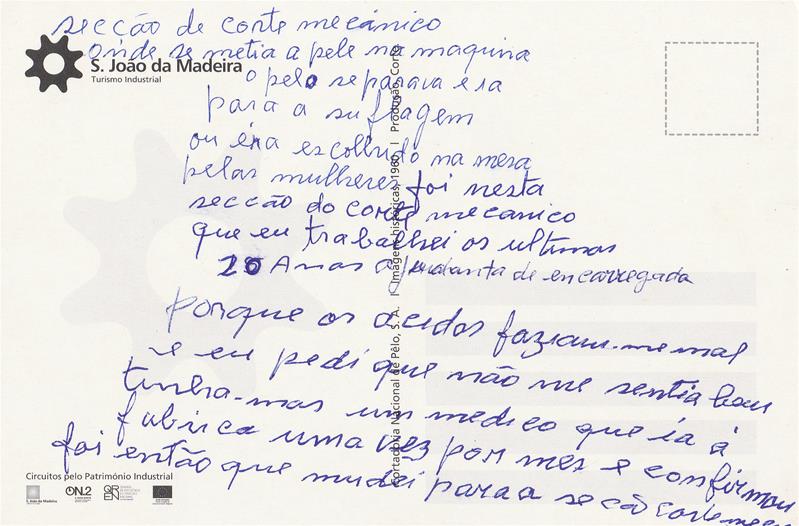 secção de corte mecánico
onde se metia a pele na maquina
S. João da Madeira
Turismo Industrial
o pelo separava e ia
para a suflagem
ou éra escolhido na mesa
pelas mulheres foi nesta
secção do corte mecanico
que eu trabalhei os ultimos
20 Anos ajudanta de encarregada
porque os acidos faziam-me mal
e eu pedi que não me sentia bem
tinha-mos um medico que ía á
fabrica uma vez por mes e confirmou
foi então que mudei para a secção corte
Cortadoria Nacional de Pêlo, S. A. | Imagens históricas, 1960 | Produção, Corte
Circuitos pelo Património Industrial
S. João da Madeira
ON.2
QREN